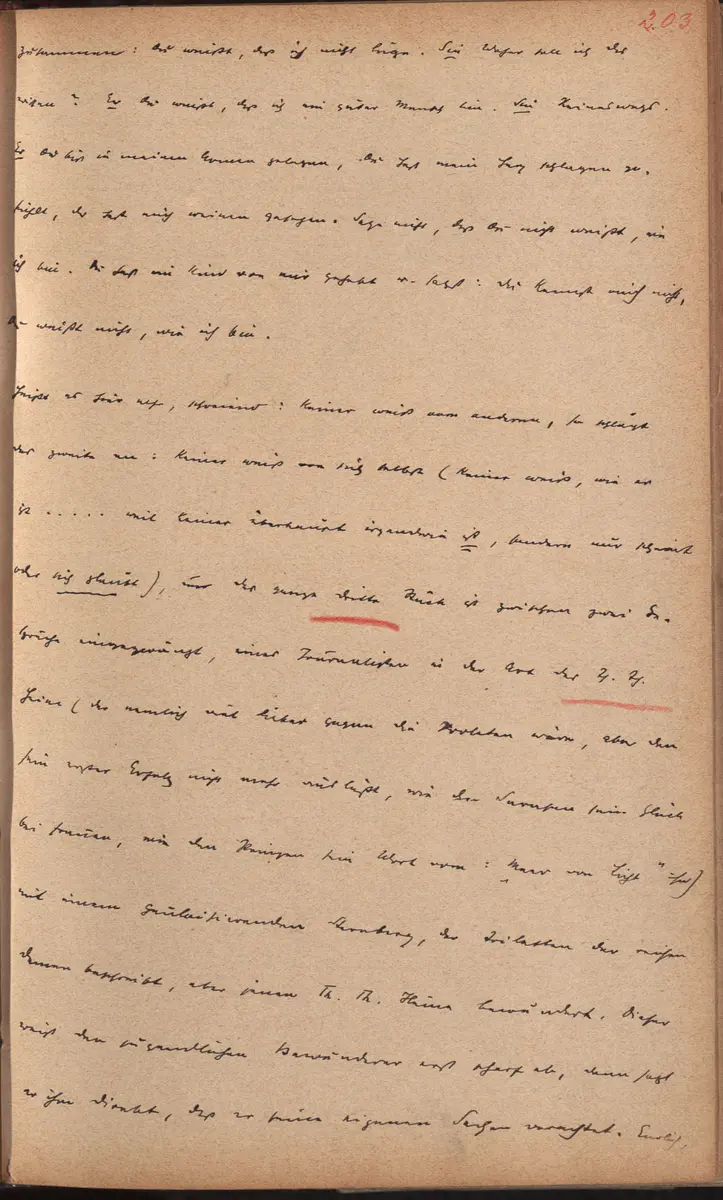 203
zusammen: Du weißt, daß ich nicht lüge. Sie Woher soll ich das
wissen? Er Du weißt, daß ich ein guter Mensch bin. Sie Keineswegs.
Er Du bist in meinen Armen gelegen, Du hast mein Herz schlagen ge-
fühlt, du hast mich weinen gesehen. Sage nicht, daß Du nicht weißt, wie
ich bin. Du hast ein Kind von mir gehabt u. sagst: Du kennst mich nicht,
Du weißt nicht, wie ich bin.
Heißt es hier also, : Keiner weiß vom anderen, so schlägt
der zweite an: Keiner weiß von sich selbst (Keiner weiß, wie er
ist ..... weil keiner überhaupt irgendwie ist, sondern nur scheint
oder sich glaubt), und das ganze dritte Stück ist zwischen zwei Ge-
spräche eingezwängt, eines Journalisten in der Art des Th. Th.
Heine (der nämlich viel lieber gegen die Proleten wäre, aber den
sein erster Erfolg nicht mehr ausläßt, wie den sein Glück
bei Frauen, wie den sein Wort vom: "Meer von Licht")
mit einem , der Toiletten der reichen
Damen beschreibt, aber jenen Th. Th. Heine bewundert. Dieser
weist den jugendlichen Bewunderer erst scharf ab, dann sagt
er ihm direkt, daß er seine eigenen Sachen verachtet. Endlich,